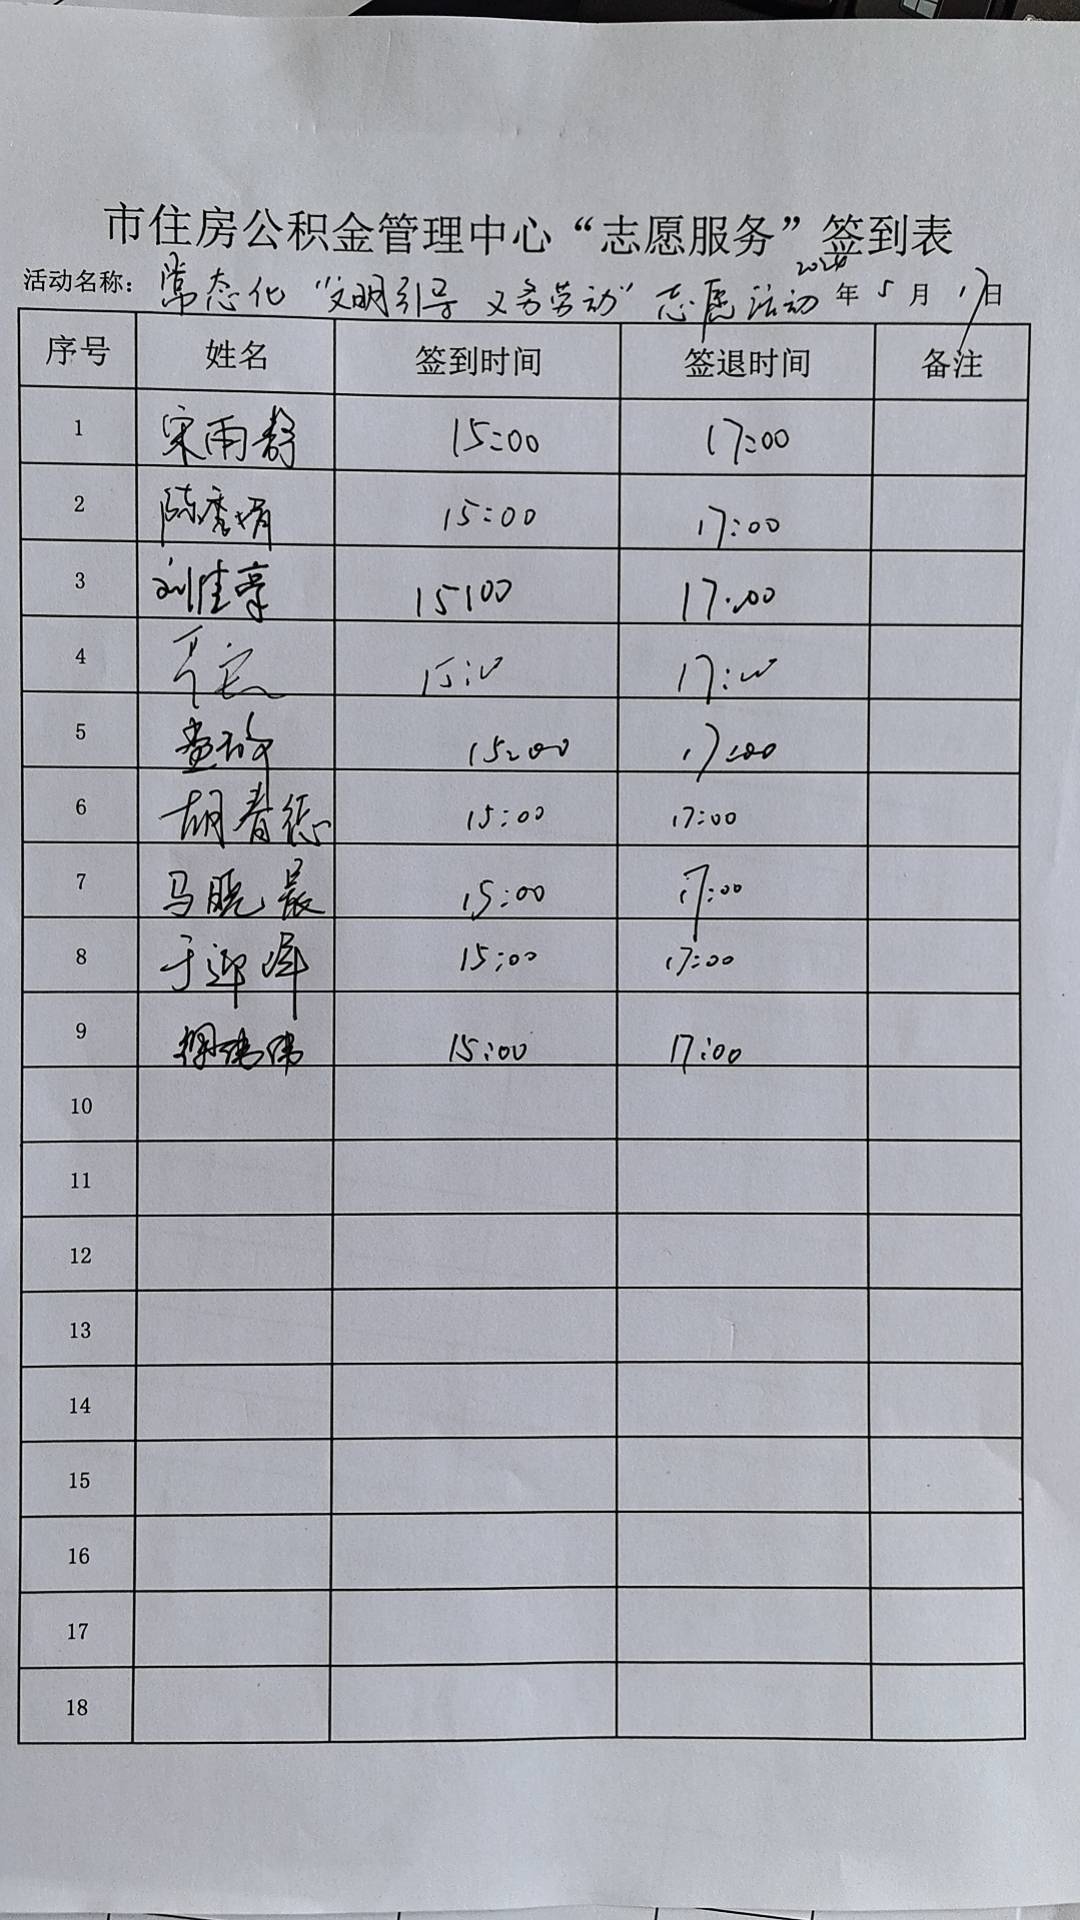 市住房公积金管理中心“志愿服务”签到表
活动名称：常态化“文明引导 义务劳动”志愿活动 2024年5月17日
序号 姓名 签到时间 签退时间 备注
1 宋雨静 15:00 17:00
2 陈秀娟 15:00 17:00
3 刘佳豪 15:00 17:00
4 15:00 17:00
5 15:00 17:00
6 胡春 15:00 17:00
7 马晓晨 15:00 17:00
8 于迎泽 15:00 17:00
9 15:00 17:00
10
11
12
13
14
15
16
17
18